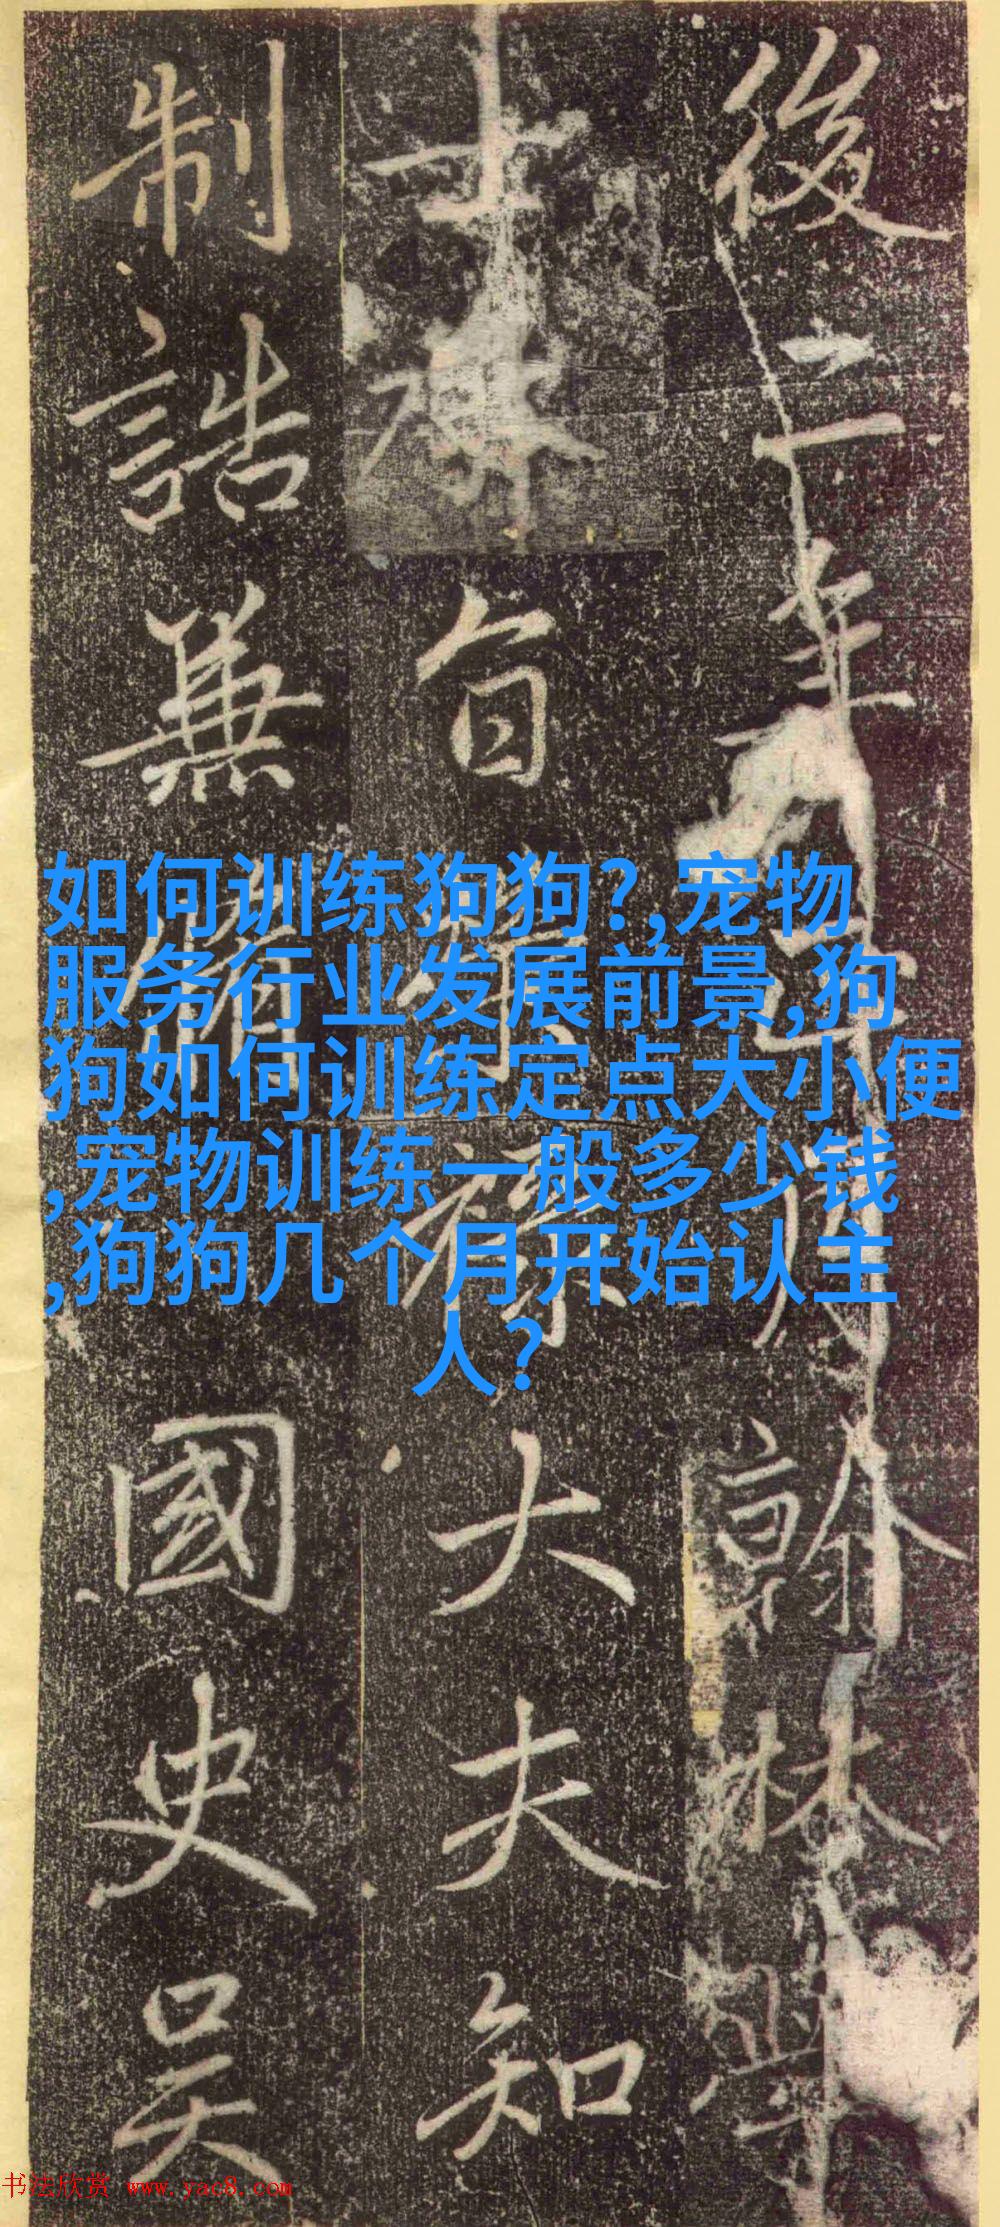 後二年 翰林學
士奉旨 大夫知
制誥兼 國史吴
如何训练狗狗?,宠物
服务行业发展前景,狗
狗如何训练定点大小便
,宠物训练一般多少钱
,狗狗几个月开始认主
人?
书法欣赏 www.yac8.com